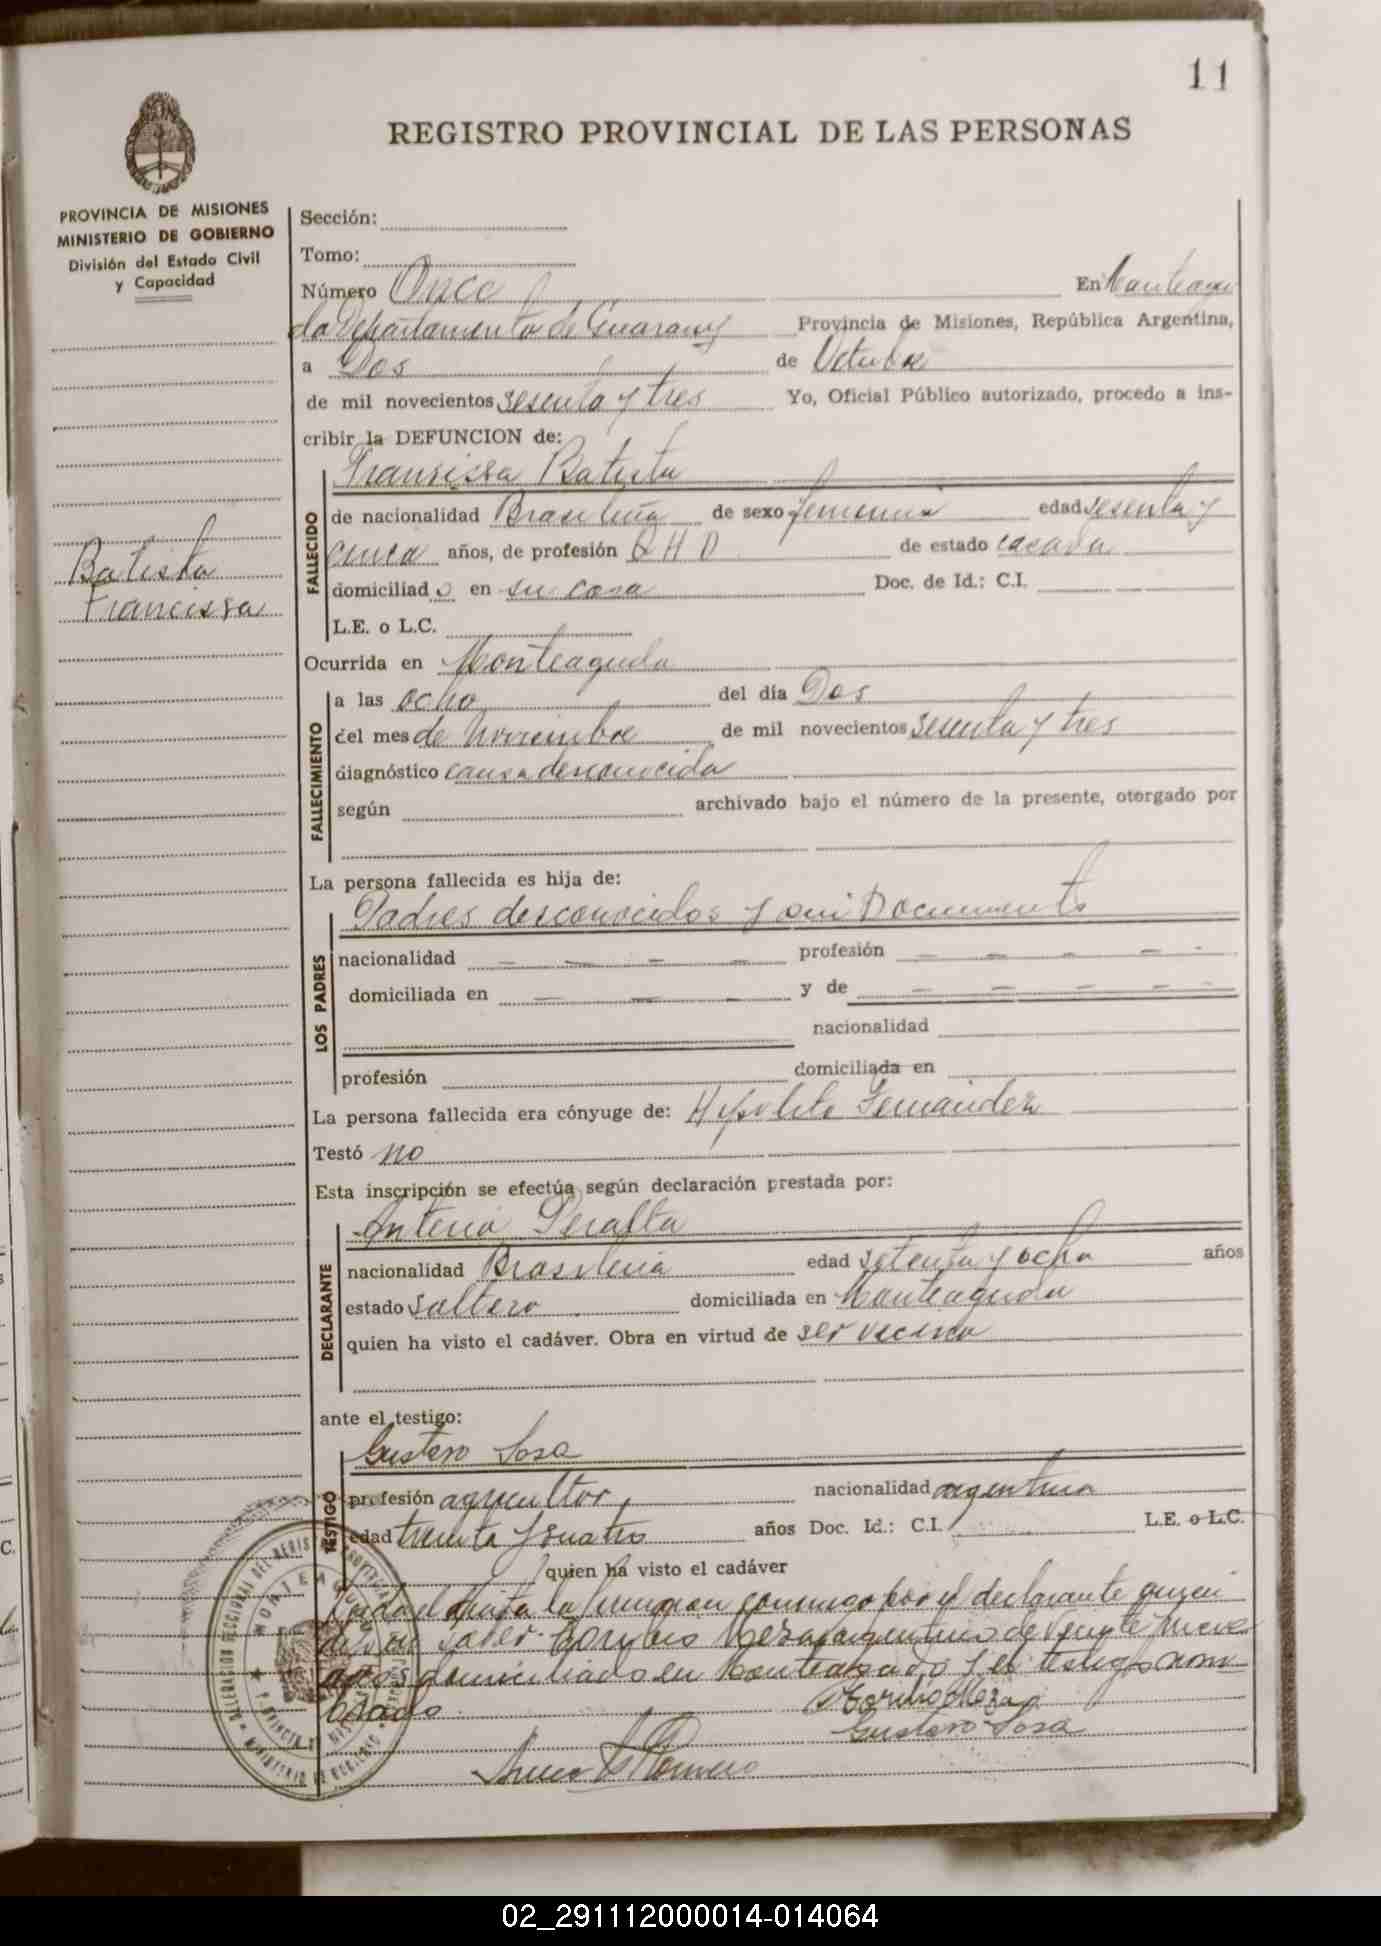 11
REGISTRO PROVINCIAL DE LAS PERSONAS
PROVINCIA DE MISIONES
MINISTERIO DE GOBIERNO
División del Estado Civil
y Capacidad
Sección:
Tomo:
Número Once En Monteagu
do Departamento de Guarany Provincia de Misiones, República Argentina,
a Dos de Octubre
de mil novecientos sesenta y tres Yo, Oficial Público autorizado, procedo a ins-
cribir la DEFUNCION de:
Batista
Francissa
FALLECIDO
Francissa Batista
de nacionalidad Brasileña de sexo femenino edad sesenta y
cinco años, de profesión Q H D de estado casada
domiciliad o en su casa Doc. de Id.: C.I.
L.E. o L.C.
Ocurrida en Monteagudo
FALLECIMIENTO
a las ocho del día Dos
del mes de Noviembre de mil novecientos sesenta y tres
diagnóstico causa desconocida
según archivado bajo el número de la presente, otorgado por
La persona fallecida es hija de:
LOS PADRES
Padres desconocidos y sin Documento
nacionalidad profesión
domiciliada en y de
nacionalidad
profesión domiciliada en
La persona fallecida era cónyuge de: Hipolito Fernandez
Testó no
Esta inscripción se efectúa según declaración prestada por:
DECLARANTE
Anterio Peralta
nacionalidad Brasileña edad setenta y ocho años
estado soltero domiciliada en Monteagudo
quien ha visto el cadáver. Obra en virtud de ser vecino
ante el testigo:
TESTIGO
Gustavo Sosa
profesión agricultor nacionalidad argentina
edad treinta y cuatro años Doc. Id.: C.I. L.E. o L.C.
quien ha visto el cadáver
Leida el acta la firman conmigo por el declarante quien
saber años domiciliado en Monteagudo y el testigo nom
brado
Gustavo Sosa
Romero
MONTEAGUDO
02_291112000014-014064